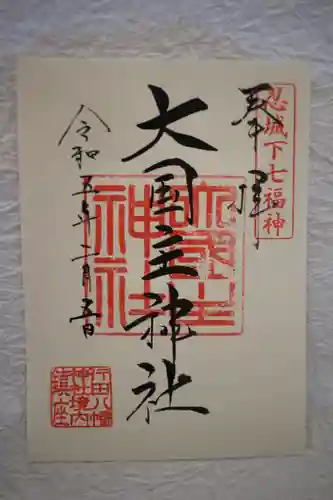 忍城下七福神
奉拝
大国主神社
大國主神社
令和五年二月五日
行田八幡神社境内鎮座